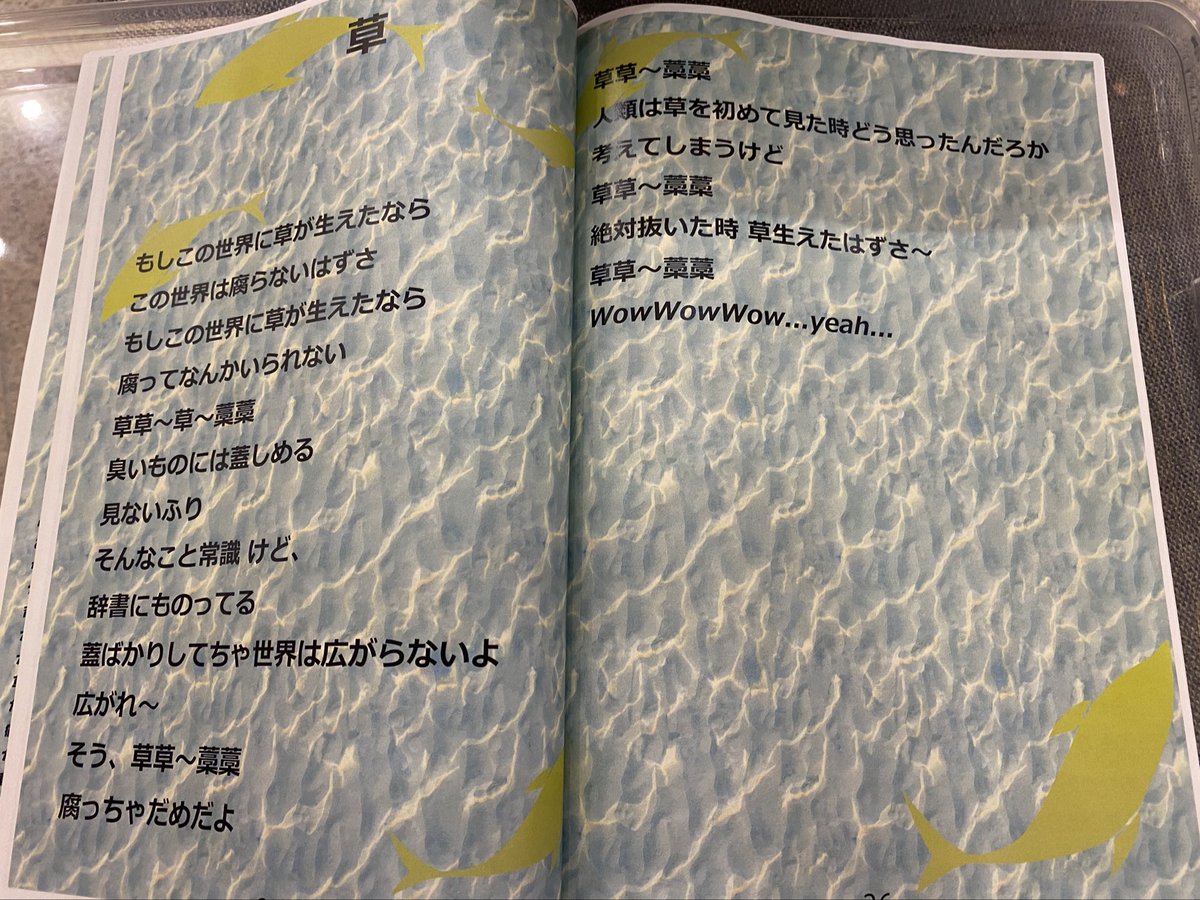 草
もしこの世界に草が生えたなら
この世界は腐らないはずさ
もしこの世界に草が生えたなら
腐ってなんかいられない
草草～草～藁藁
臭いものには蓋しめる
見ないふり
そんなこと常識 けど、
辞書にものってる
蓋ばかりしてちゃ世界は広がらないよ
広がれ～
そう、草草～藁藁
腐っちゃだめだよ
草草～藁藁
人類は草を初めて見た時どう思ったんだろか
考えてしまうけど
草草～藁藁
絶対抜いた時 草生えたはずさ～
草草～藁藁
WowWowWow...yeah...